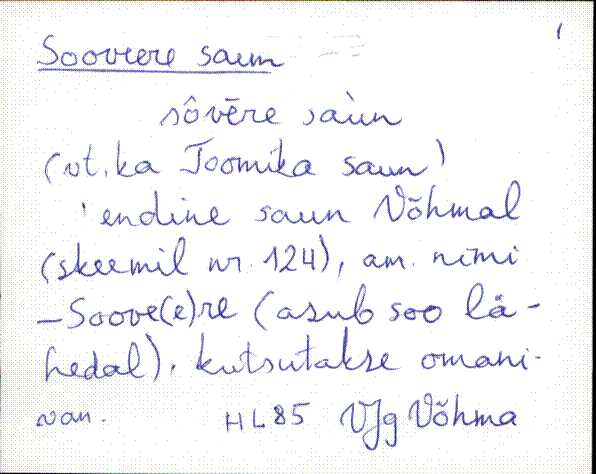 1
Soovere saun
sôvēre sàun
(vt. ka Toomika saun)
'endine saun Võhmal
(skeemil nr. 124), am. nimi
– Soove(e)re (asub soo lä-
hedal), kutsutakse omani-
HL85 VJg Võhma